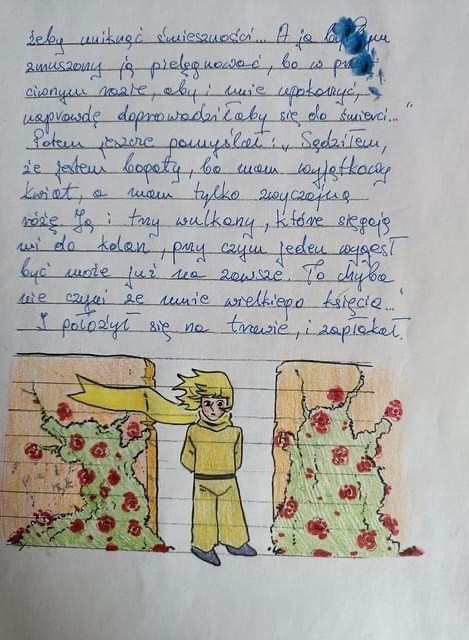 żeby uniknąć śmieszności... A ja był
zmuszony ją pielęgnować, bo w
ciwnym razie, aby i mnie upokorzyć,
naprawdę doprowadziłaby się do śmierci..."
Potem jeszcze pomyślał: „Sądziłem,
że jestem bogaty, bo mam wyjątkowy
kwiat, a mam tylko zwyczajną
różę. Ją i trzy wulkany, które sięgają
mi do kolan, przy czym jeden wygasł
być może już na zawsze. To chyba
nie czyni ze mnie wielkiego księcia..."
I położył się na trawie, i zapłakał.